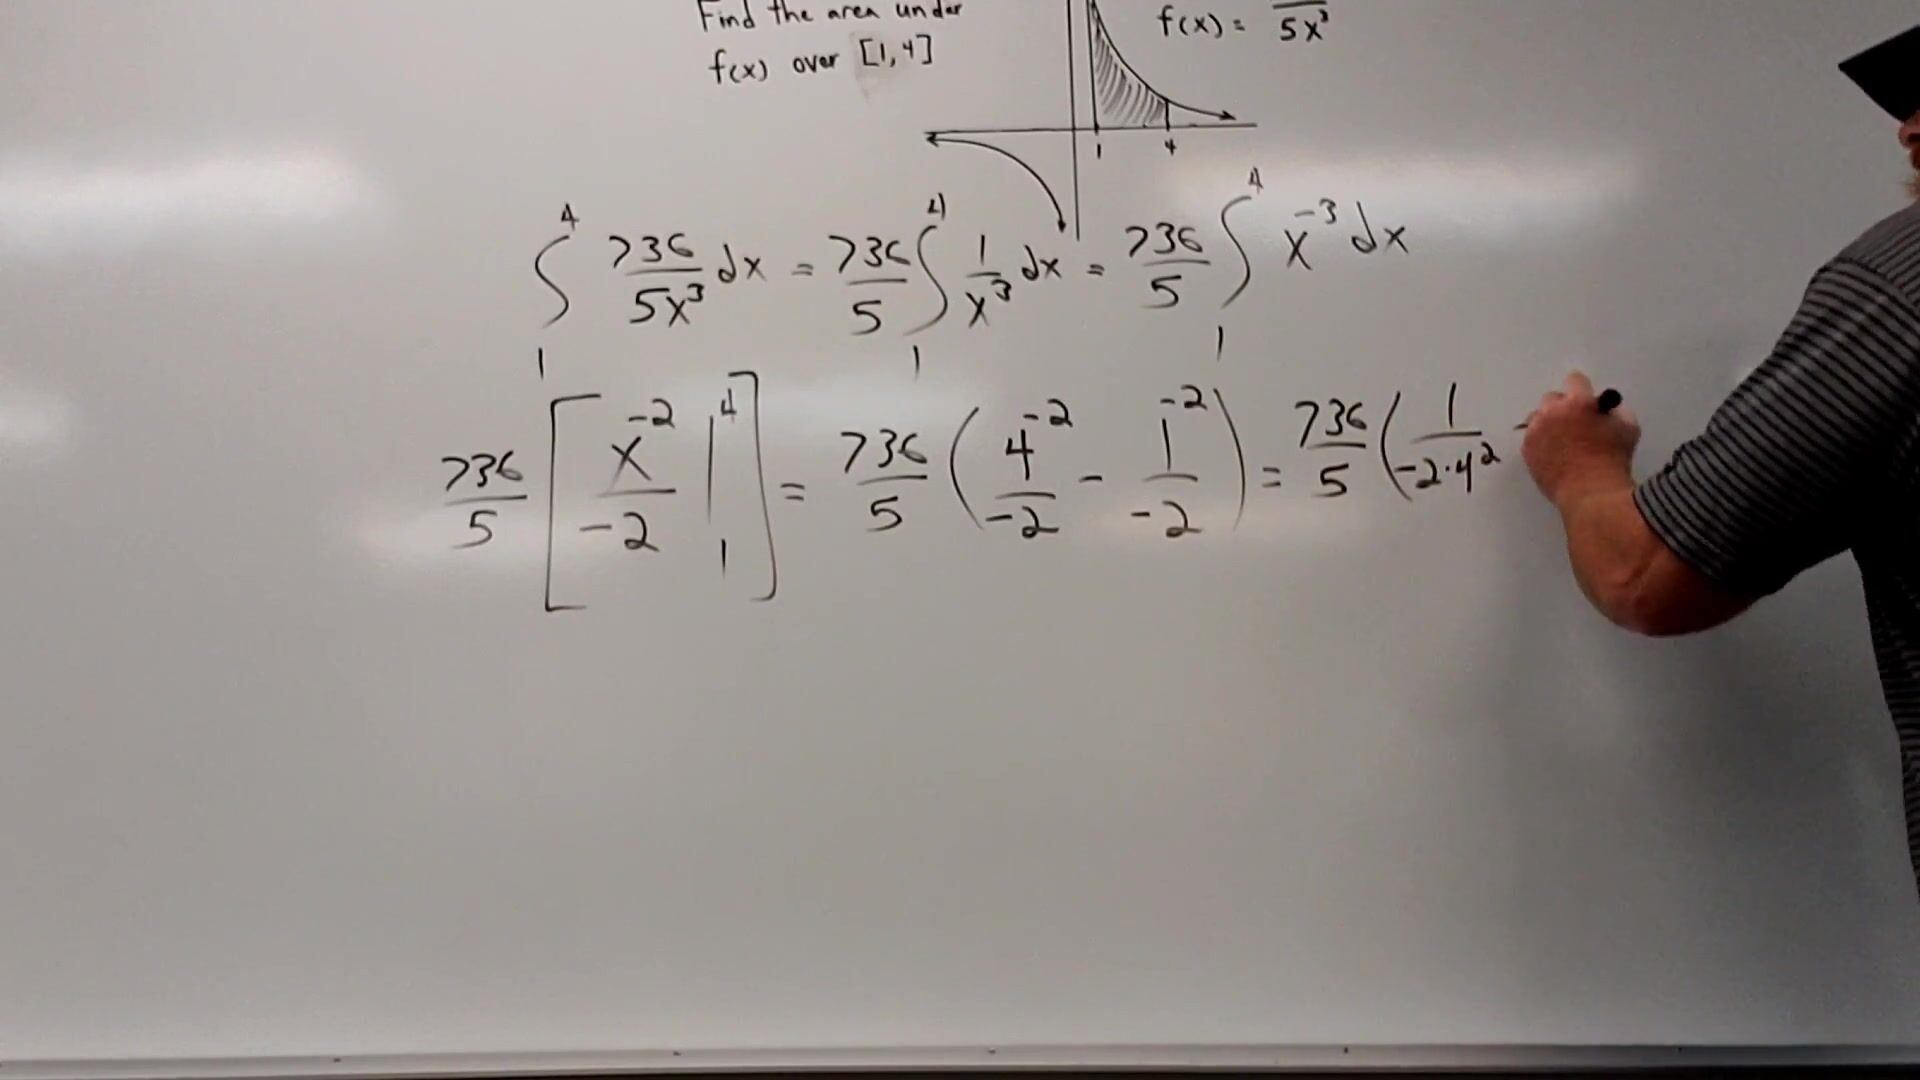 Find the area under
f(x) over [1,4]
f(x) = 5x³
1 4
∫₁⁴ 736/5x³ dx = 736/5 ∫₁⁴ 1/x³ dx = 736/5 ∫₁⁴ x⁻³ dx
736/5 [x⁻²/-2 |₁⁴] = 736/5 (4⁻²/-2 - 1⁻²/-2) = 736/5 (1/-2·4² -